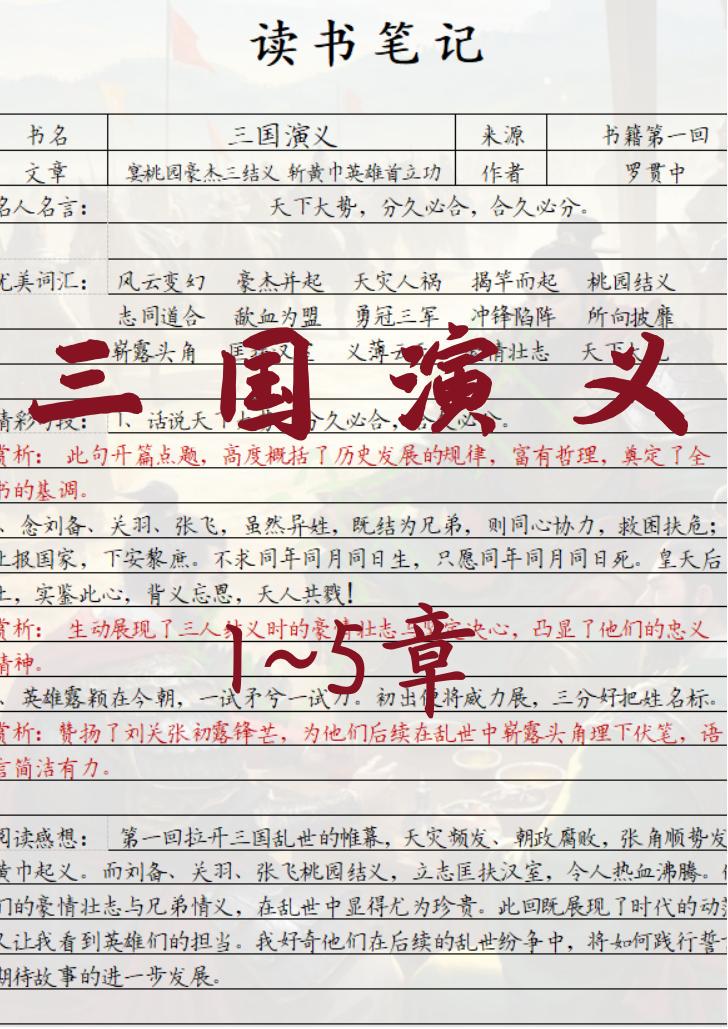 读书笔记
书名 三国演义 来源 书籍第一回
文章 宴桃园豪杰三结义 斩黄巾英雄首立功 作者 罗贯中
名人名言： 天下大势，分久必合，合久必分。
优美词汇： 风云变幻 豪杰并起 天灾人祸 揭竿而起 桃园结义
志同道合 歃血为盟 勇冠三军 冲锋陷阵 所向披靡
崭露头角 匡扶汉室 义薄云天 豪情壮志 天下大乱
三国演义
精彩句段： 1、话说天下大势，分久必合，合久必分。
赏析： 此句开篇点题，高度概括了历史发展的规律，富有哲理，奠定了全
书的基调。
、念刘备、关羽、张飞，虽然异姓，既结为兄弟，则同心协力，救困扶危；
上报国家，下安黎庶。不求同年同月同日生，只愿同年同月同日死。皇天后
土，实鉴此心，背义忘恩，天人共戮！
赏析： 生动展现了三人结义时的豪情壮志与坚定决心，凸显了他们的忠义
精神。
1~5章
、英雄露颖在今朝，一试矛兮一试刀。初出便将威力展，三分好把姓名标。
赏析：赞扬了刘关张初露锋芒，为他们后续在乱世中崭露头角埋下伏笔，语
言简洁有力。
阅读感想： 第一回拉开三国乱世的帷幕，天灾频发、朝政腐败，张角顺势发
黄巾起义。而刘备、关羽、张飞桃园结义，立志匡扶汉室，令人热血沸腾。
们的豪情壮志与兄弟情义，在乱世中显得尤为珍贵。此回既展现了时代的动
又让我看到英雄们的担当。我好奇他们在后续的乱世纷争中，将如何践行誓
期待故事的进一步发展。